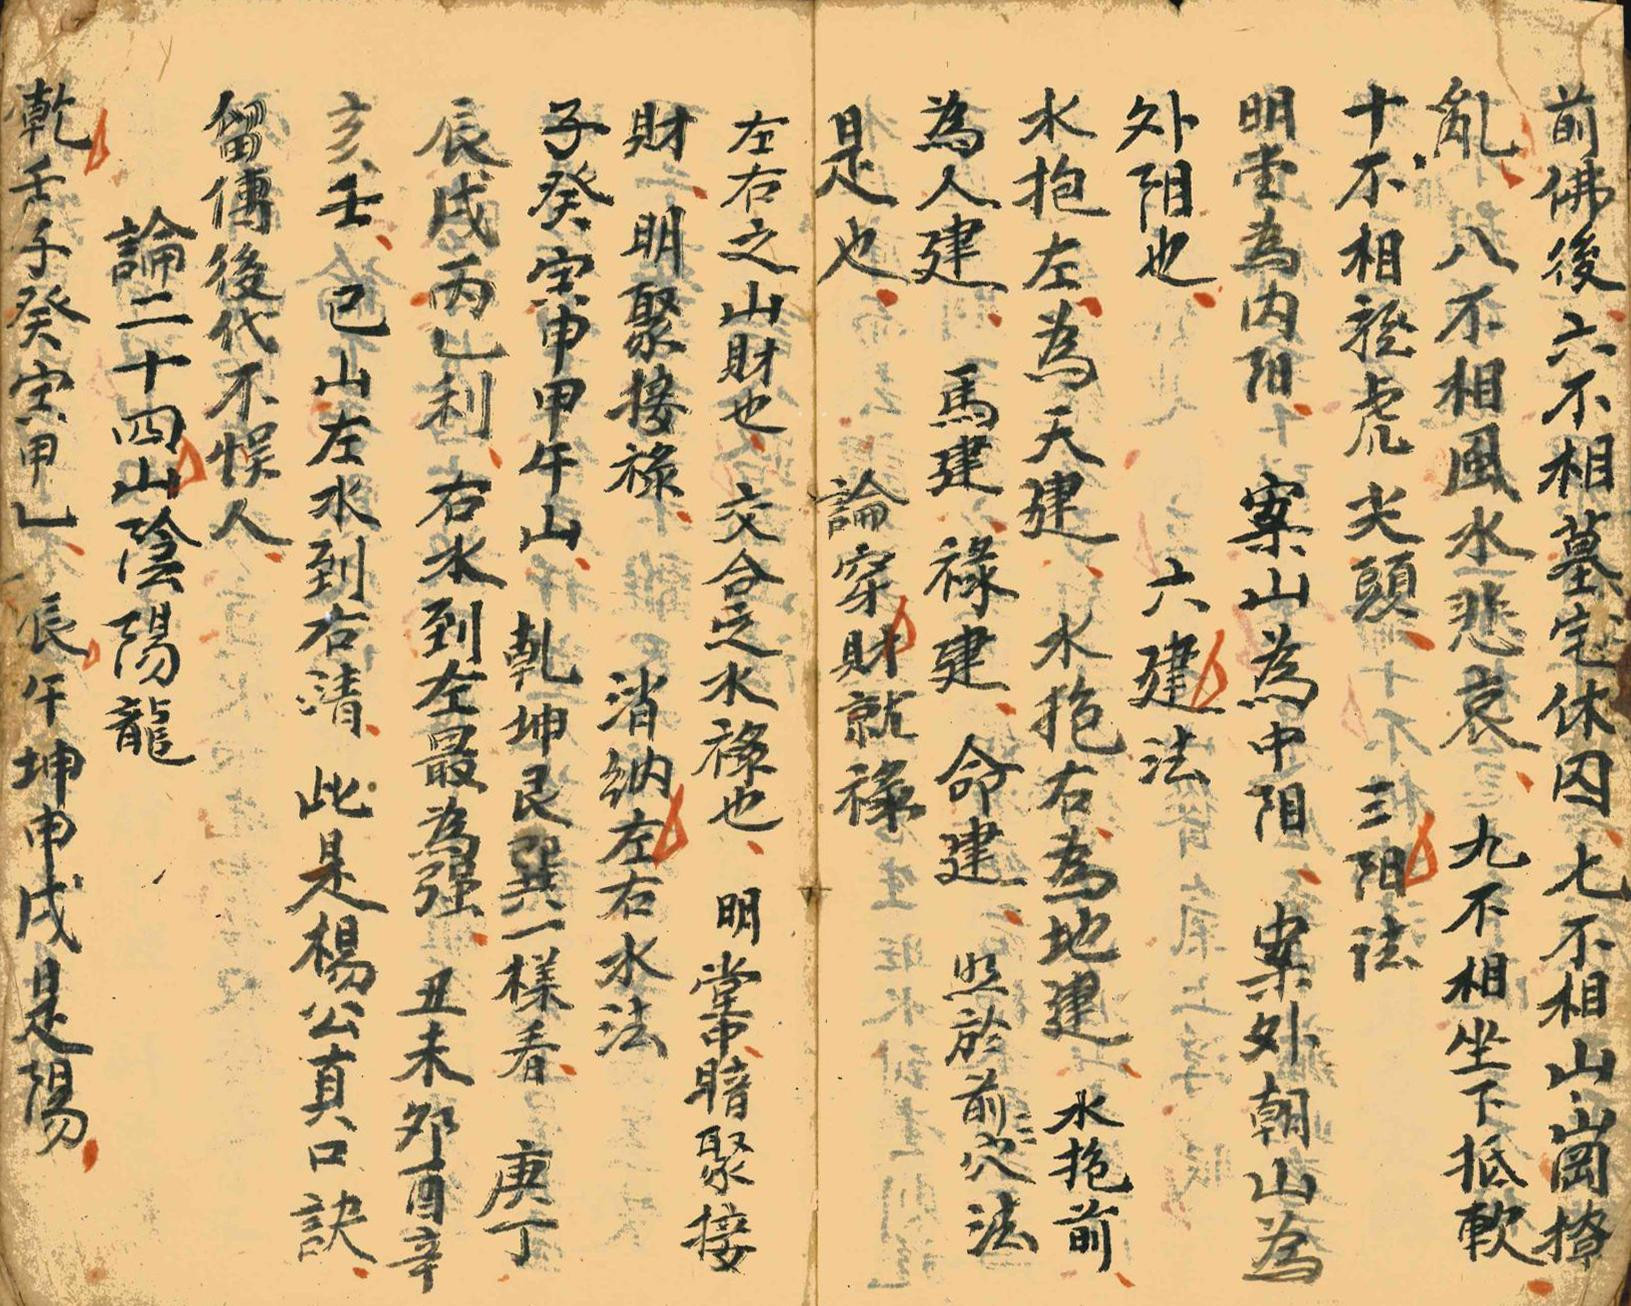 前佛後六不相墓宅休囚七不相山崗撩
亂八不相風水悲哀九不相坐下抵軟
十不相龍虎尖頭 三阳法
明堂為内阳 案山為中阳 案外朝山為
外阳也 六建法
水抱左為天建 水抱右為地建 水抱前
為人建 馬建 祿建 命建 照於前穴法
是也 論穿財就祿
左右之山財也 交合之水祿也 明堂暗聚接
財 明聚接祿 消納左右水法
子癸寅申甲午山 乾坤艮巽一樣看 庚丁
辰戌丙乚利 右水到左最為强 丑未夘酉辛
亥壬 巳山左水到右清 此是楊公真口訣
留傳後代不悮人
論二十四山陰陽龍
乾壬子癸寅甲乚辰午坤申戌是陽